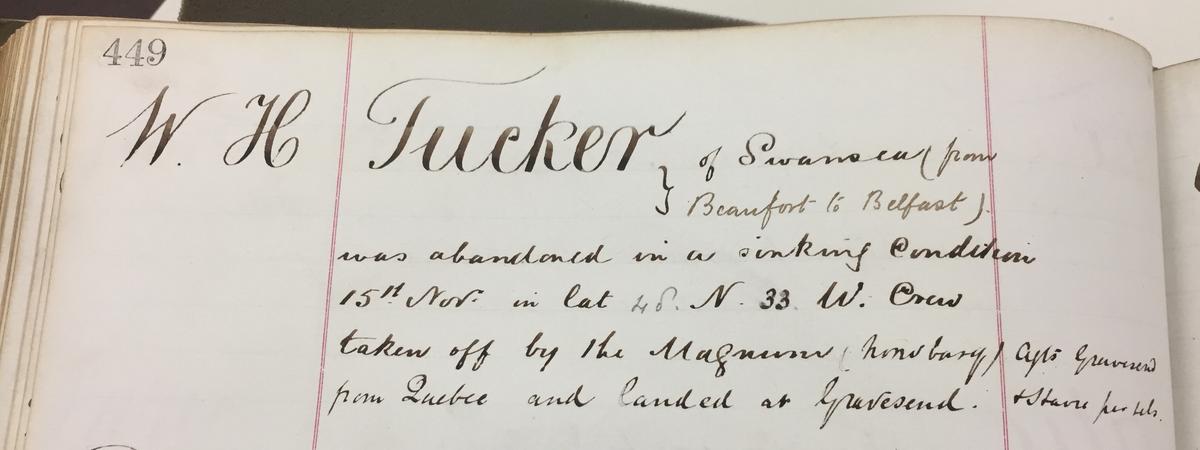 449
W. H Tucker } of Swansea (from
Beaufort to Belfast).
was abandoned in a sinking Condition
15th Nov. in lat 48. N. 33 W. Crew
taken off by the Magnum (Norw barq)
from Quebec and landed at Gravesend.
Agts Gravesend
& Stavr per tels.